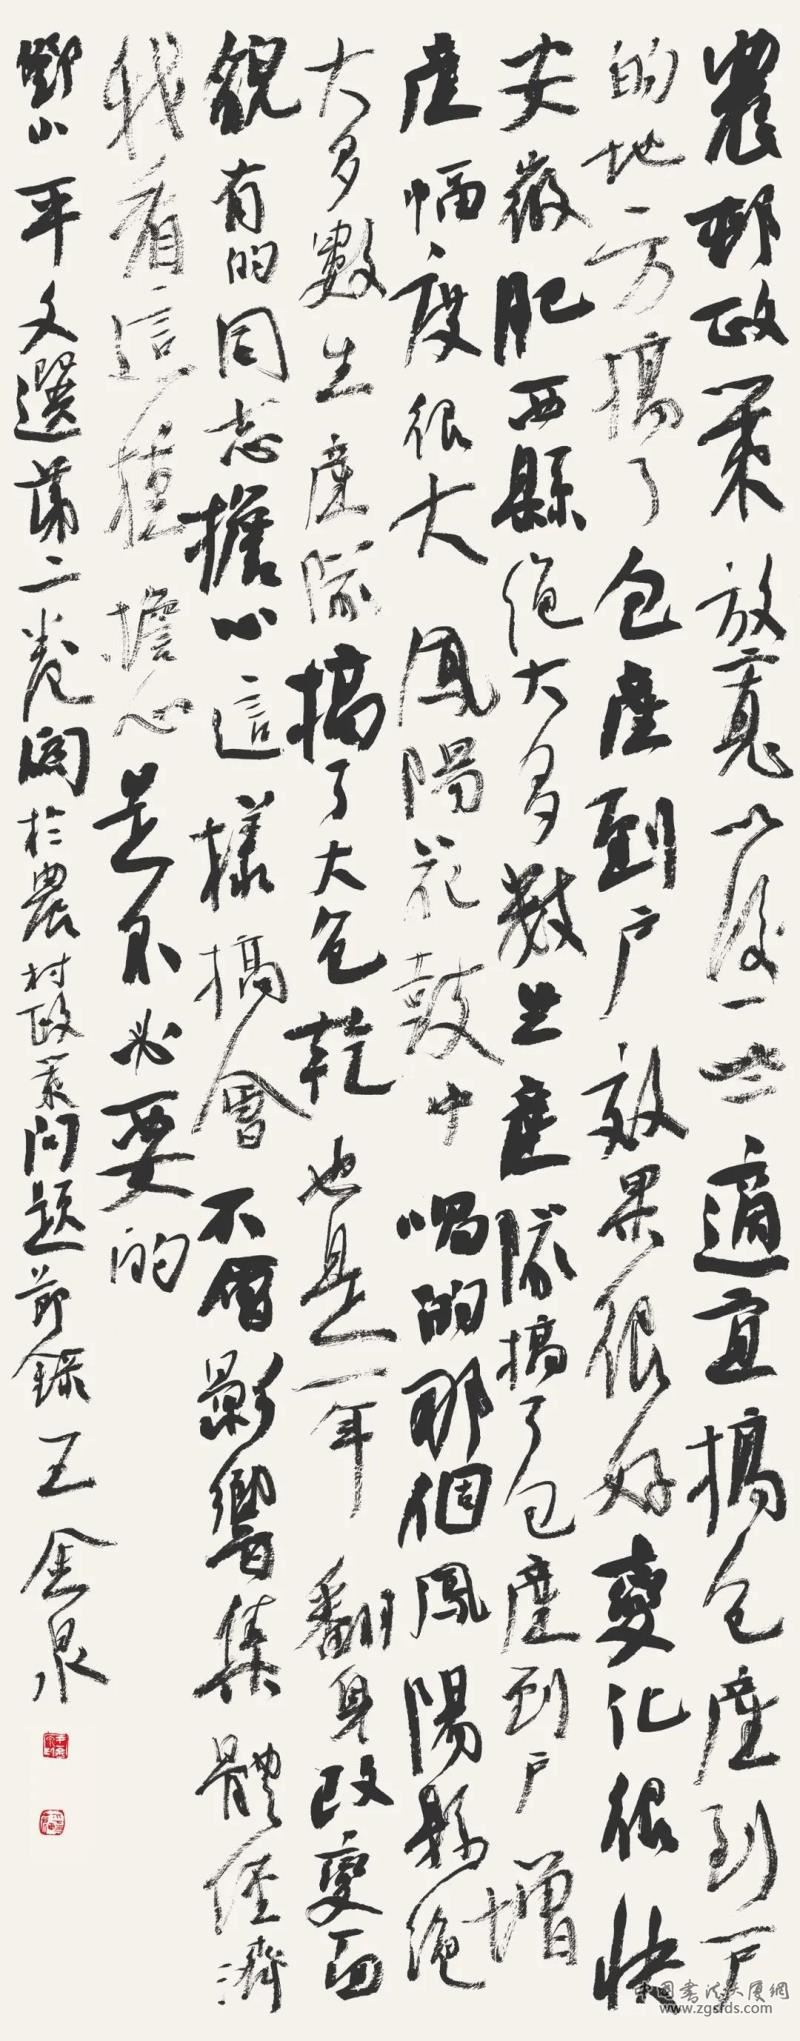 農邨政策放寬以後一些適宜搞包產到戶
的地方搞了包產到戶效果很好變化很快
安徽肥西縣絕大多數生產隊搞了包產到戶增
產幅度很大鳳陽花鼓中唱的那個鳳陽縣絕
大多數生產隊搞了大包乾也是一年翻身改變面
貌有的同志擔心這樣搞會不會影響集體經濟
我看這種擔心是不必要的
鄧小平文選第二卷關於農村政策問題節錄王金泉
中國書法大廈網
www.zgsfds.com